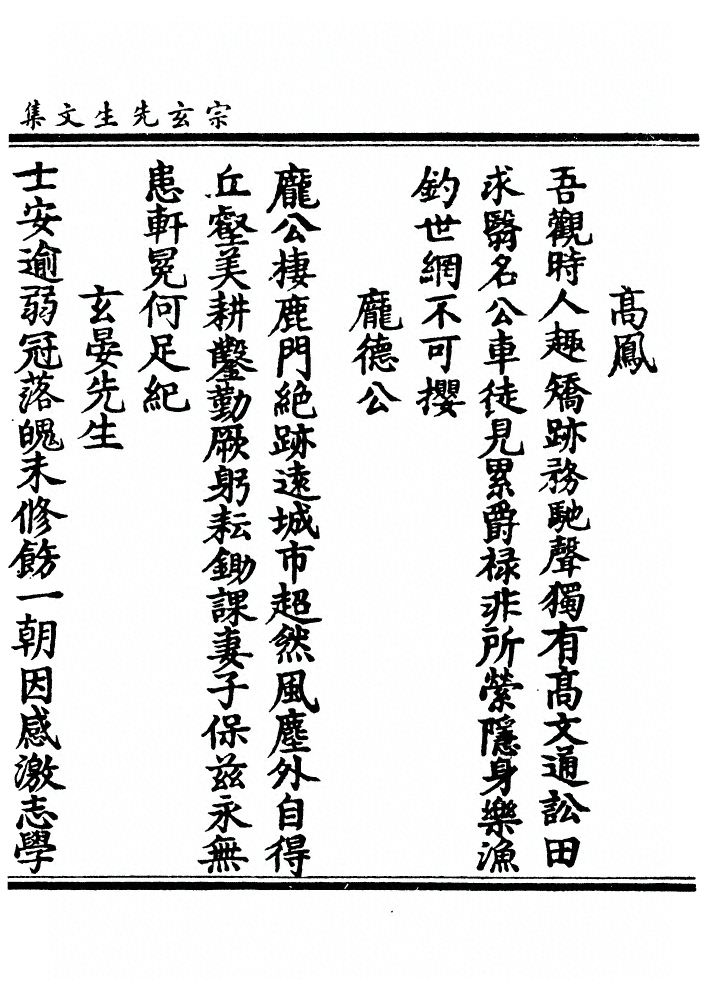 宗玄先生文集
高鳳
吾觀時人趣矯跡務馳聲獨有高文通訟田
求翳名公車徒見累爵祿非所縈隱身樂漁
釣世網不可攖
龐德公
龐公棲鹿門絕跡遠城市超然風塵外自得
丘壑美耕鑿勤厥躬耘鋤課妻子保茲永無
患軒冕何足紀
玄晏先生
士安逾弱冠落魄未修飭一朝因感激志學